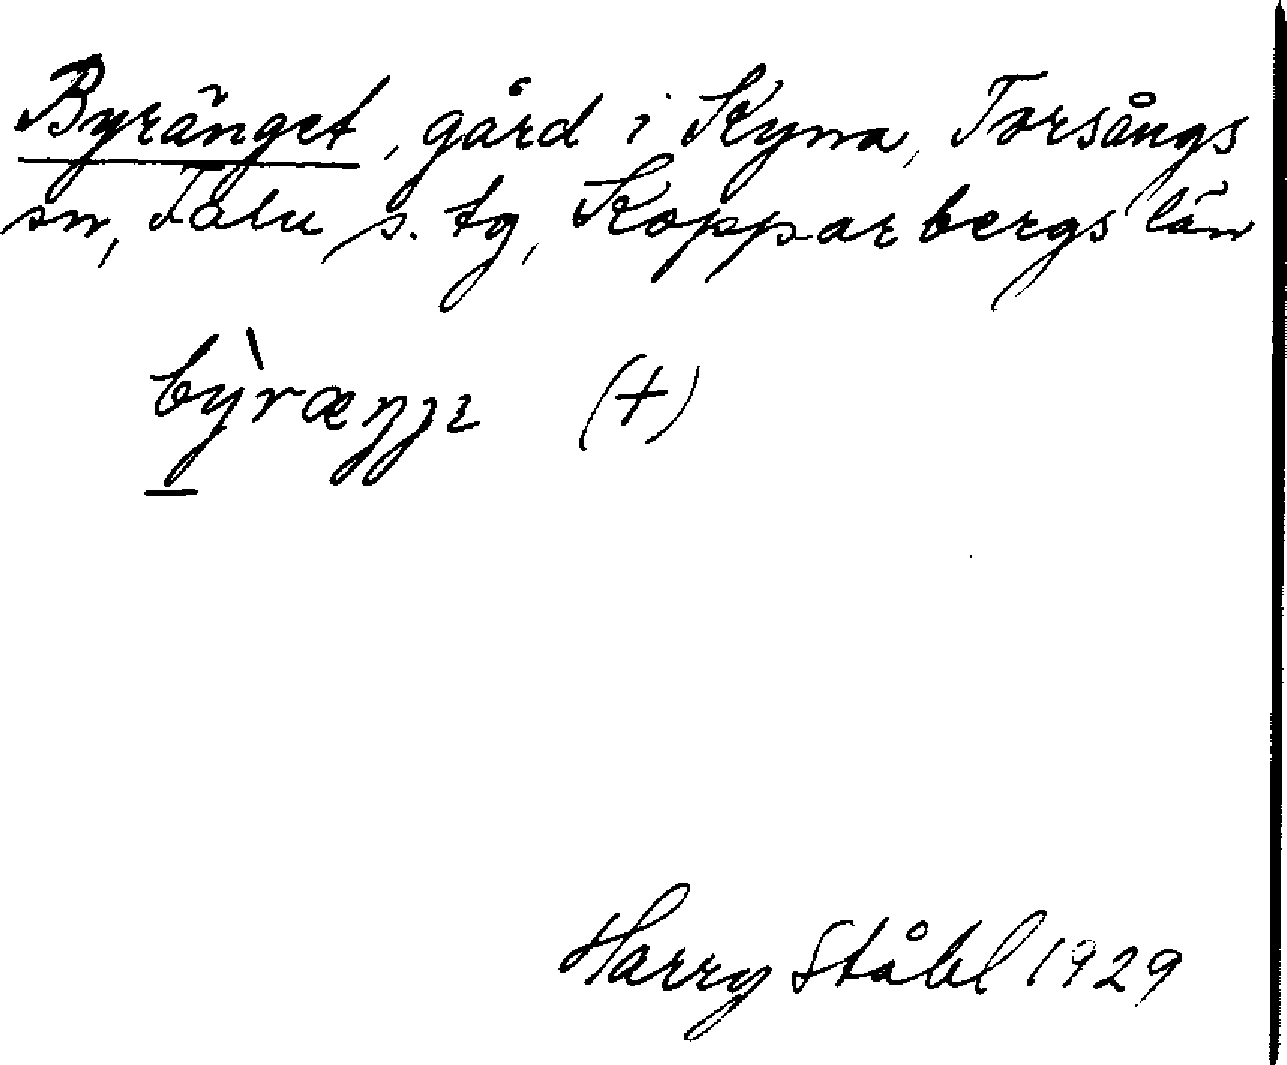 Byränget, gård i Kyna, Torsångs
sn, Falu s. tg, Kopparbergs län
bỳ̖ræŋŋɛ (+)
Harry Ståhl 1929